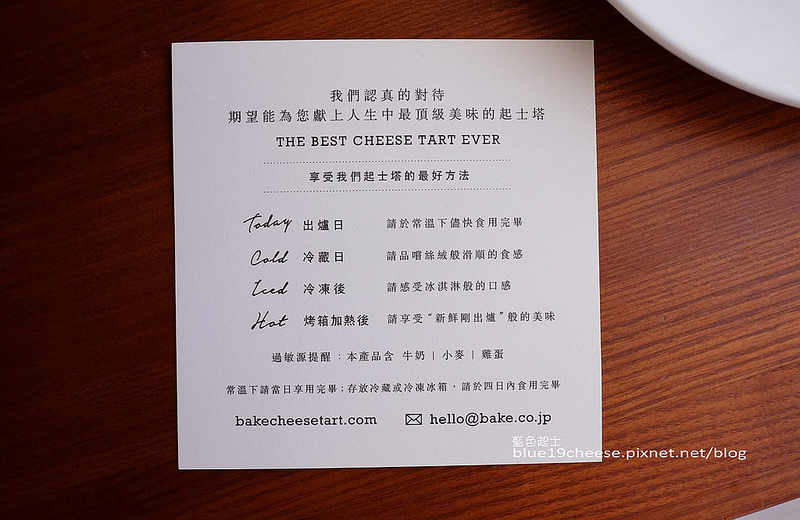 我們認真的對待
期望能為您獻上人生中最頂級美味的起士塔
THE BEST CHEESE TART EVER
享受我們起士塔的最好方法
Today 出爐日 請於常溫下儘快食用完畢
Cold 冷藏日 請品嚐絲絨般滑順的食感
Iced 冷凍後 請感受冰淇淋般的口感
Hot 烤箱加熱後 請享受“新鮮剛出爐”般的美味
過敏源提醒：本產品含 牛奶 | 小麥 | 雞蛋
常溫下請當日享用完畢；存放冷藏或冷凍冰箱，請於四日內食用完畢
bakecheesetart.com hello@bake.co.jp
藍色起士
blue19cheese.pixnet.net/blog